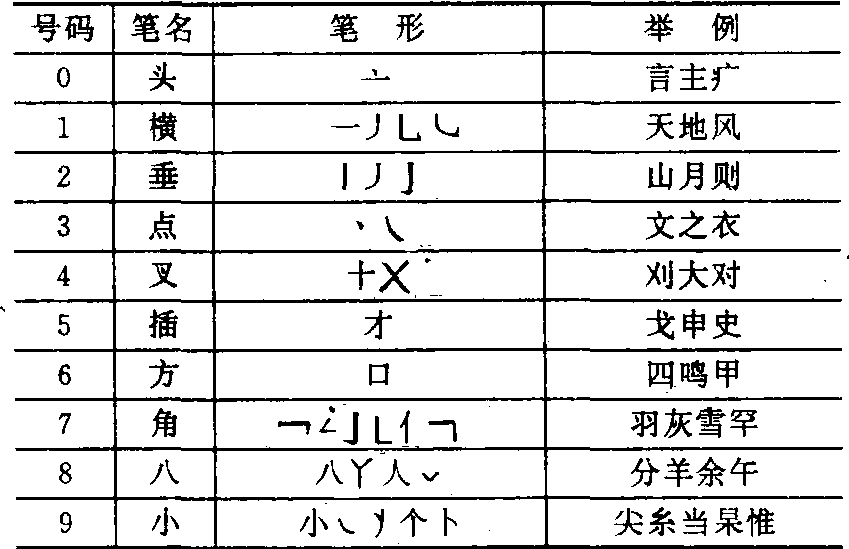 号码 笔名 笔形 举例
0 头 亠 言主疒
1 横 一丿乚㇃ 天地风
2 垂 丨丿亅 山月则
3 点 丶㇏ 文之衣
4 叉 十乂 刈大对
5 插 扌 戈申史
6 方 口 四鸣甲
7 角 羽灰雪罕
8 八 八丫人 分羊余午
9 小 小 个卜 尖糸当杲惟